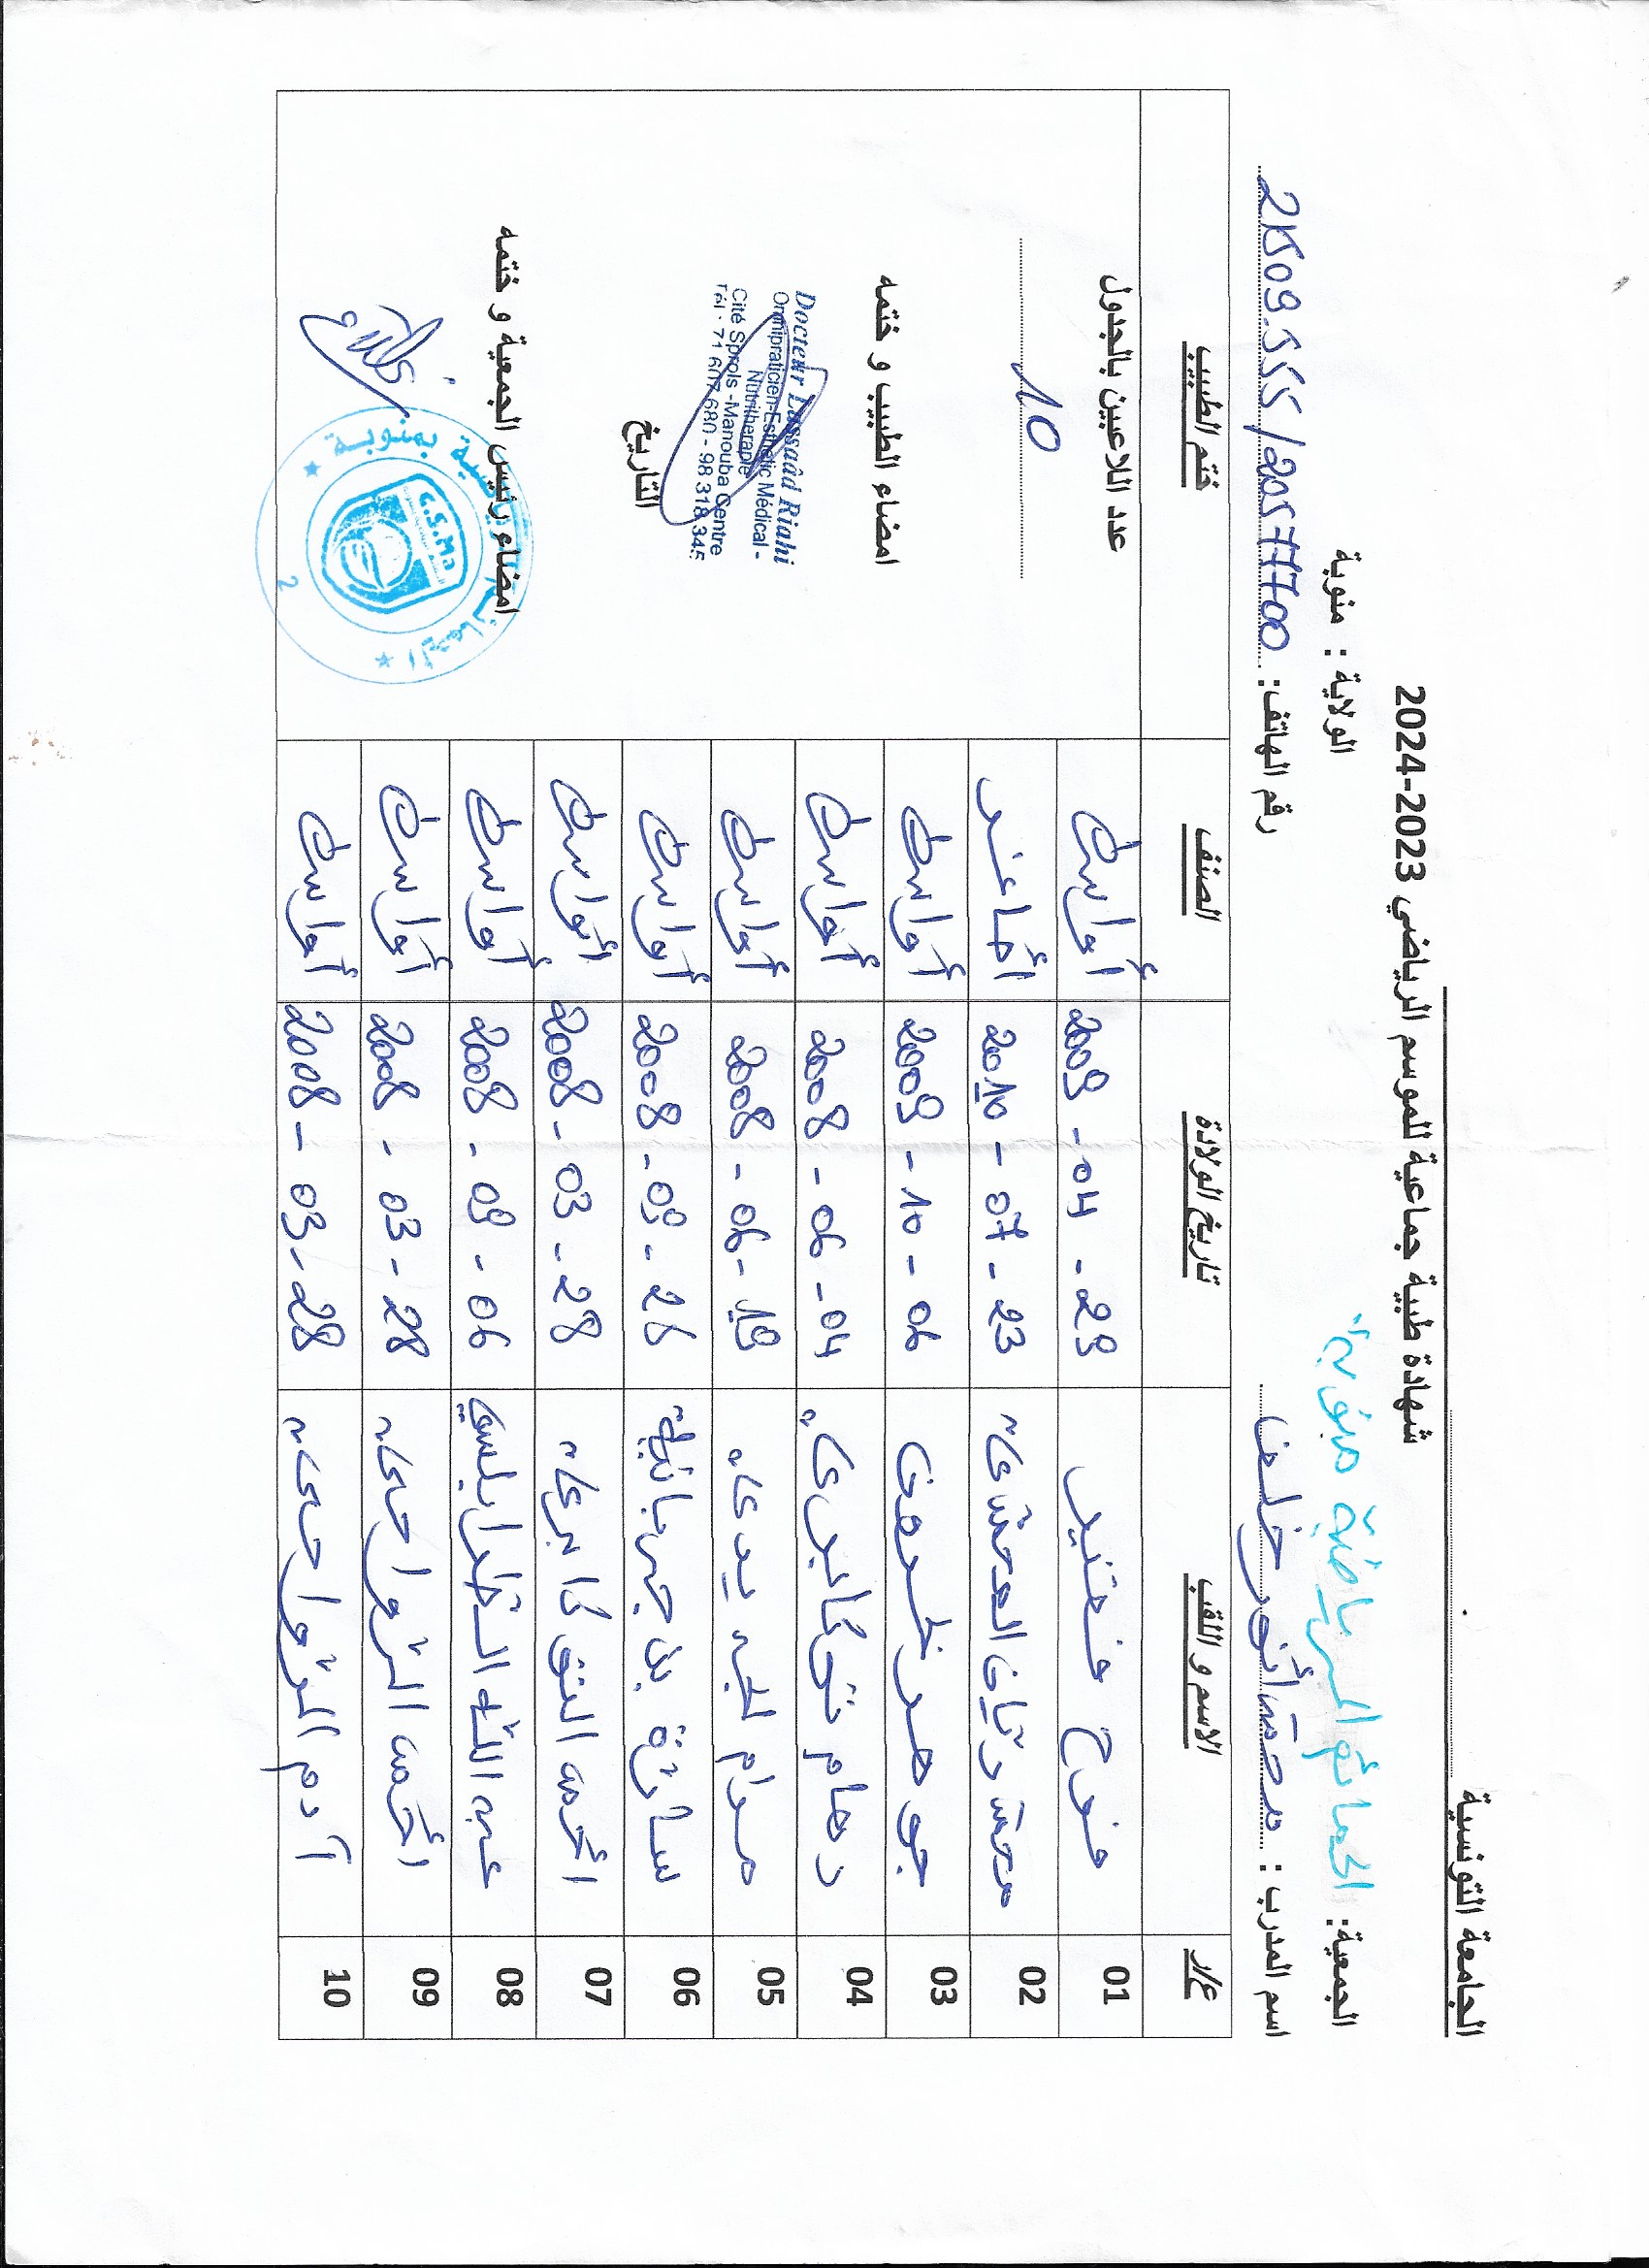 الجامعة التونسية
شهادة طبية جماعية للموسم الرياضي 2023-2024
الجمعية: الحمائم الرياضية بمنوبة الولاية : منوبة
اسم المدرب : محمد أنور خلف رقم الهاتف:
ع/ر الاسم و اللقب تاريخ الولادة الصنف ختم الطبيب
01 فرح 2009 - 04 - 29 أواسط
02 محمد ريان 2010 - 07 - 23 أصاغر
03 جوهر 2009 - 10 - 06 أواسط
04 رهام 2008 - 06 - 04 أواسط
05 مرام 2008 - 06 - 19 أواسط
06 سارة بن جبرمانية 2008 - 09 - 26 أواسط
07 أحمد التوكابري 2008 - 03 - 28 أواسط
08 عبد الله الطرابلسي 2008 - 09 - 06 أواسط
09 أحمد الرواحي 2008 - 03 - 28 أواسط
10 آدم الرواحي 2008 - 03 - 28 أواسط
عدد اللاعبين بالجدول
10
امضاء الطبيب و ختمه
Docteur Lassaâd Riahi
Omnipraticien-Esthétic Médical -
Nutritherapie
Cité Sprols -Manouba Centre
Tél : 71 607 680 - 98 318 345
التاريخ
امضاء رئيس الجمعية و ختمه
بمنوبة
C.S.Ma